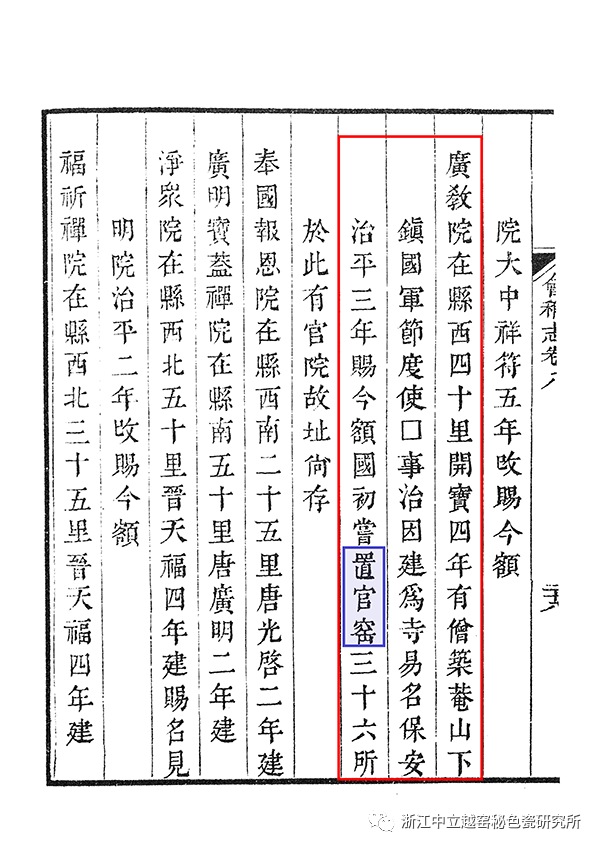 院大中祥符五年改賜今額
廣教院在縣西四十里開寶四年有僧築菴山下
鎮國軍節度使□事治因建爲寺易名保安
治平三年賜今額國初嘗置官窑三十六所
於此有官院故址尙存
奉國報恩院在縣西南二十五里唐光啓二年建
廣明寶蓋禪院在縣南五十里唐廣明二年建
淨衆院在縣西北五十里晉天福四年建賜名見
明院治平二年改賜今額
福祈禪院在縣西北三十五里晉天福四年建
會稽志卷八
浙江中立越窑秘色瓷研究所